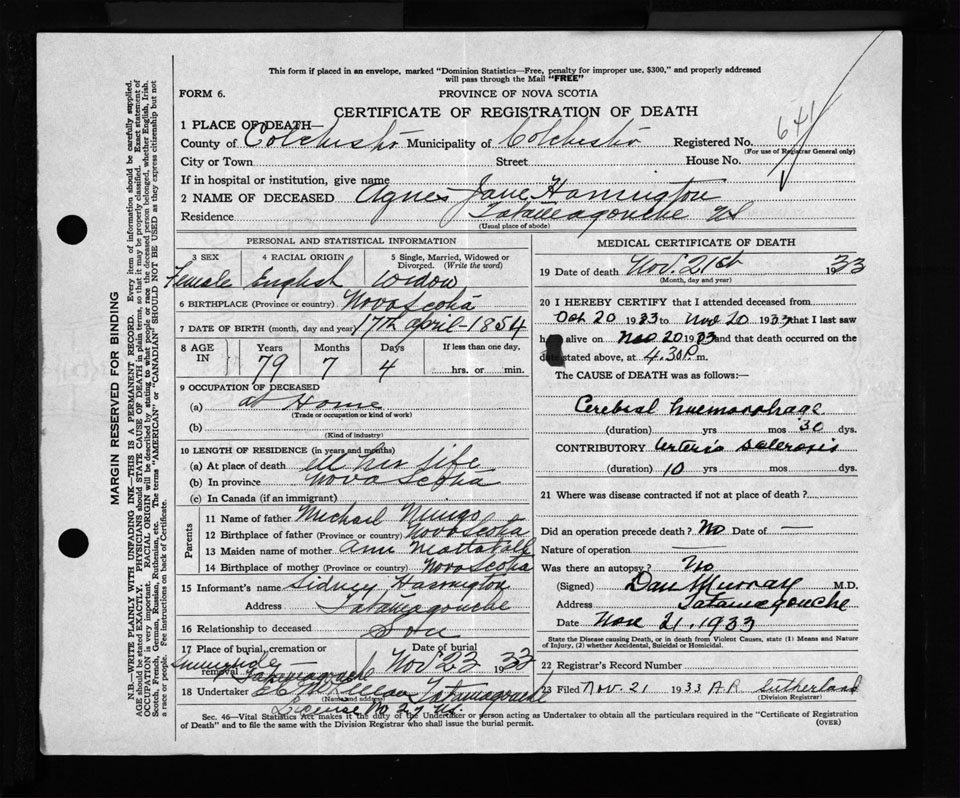 This form if placed in an envelope, marked "Dominion Statistics—Free, penalty for improper use, $300," and properly addressed
will pass through the Mail "FREE"
FORM 6.
PROVINCE OF NOVA SCOTIA
CERTIFICATE OF REGISTRATION OF DEATH
641
1 PLACE OF DEATH—
County of Colchester Municipality of Colchester Registered No.
(For use of Registrar General only)
City or Town Street House No.
If in hospital or institution, give name
2 NAME OF DECEASED Agnes Jane Harrington
Residence Tatamagouche NS
(Usual place of abode)
PERSONAL AND STATISTICAL INFORMATION
3 SEX 4 RACIAL ORIGIN 5 Single, Married, Widowed or
Divorced. (Write the word)
Female English Widow
6 BIRTHPLACE (Province or country) Nova Scotia
7 DATE OF BIRTH (month, day and year) 17th april-1854
8 AGE IN Years Months Days If less than one day,
79 7 4 hrs. or min.
9 OCCUPATION OF DECEASED
(a) at Home
(Trade or occupation or kind of work)
(b)
(Kind of industry)
10 LENGTH OF RESIDENCE (in years and months)
(a) At place of death all her life
(b) In province Nova Scotia
(c) In Canada (if an immigrant)
Parents
11 Name of father Michael
12 Birthplace of father (Province or country) Nova Scotia
13 Maiden name of mother Ann Mattatall
14 Birthplace of mother (Province or country) Nova Scotia
15 Informant's name Sidney Harrington
Address Tatamagouche
16 Relationship to deceased Son
17 Place of burial, cremation or removal Date of burial
Tatamagouche Nov 23 1933
18 Undertaker Tatamagouche
(Name and address)
License No 27 NS.
MEDICAL CERTIFICATE OF DEATH
19 Date of death Nov. 21st 1933
(Month, day and year)
20 I HEREBY CERTIFY that I attended deceased from
Oct 20 1933 to Nov 20 1933 that I last saw
h alive on Nov 20 1933 and that death occurred on the
date stated above, at 4.30 P. m.
The CAUSE of DEATH was as follows:—
Cerebral haemorrhage
(duration) yrs mos 30 dys.
CONTRIBUTORY Arterio sclerosis
(duration) 10 yrs mos dys.
21 Where was disease contracted if not at place of death?
Did an operation precede death? No Date of —
Nature of operation —
Was there an autopsy? No
(Signed) Dan Murray M.D.
Address Tatamagouche
Date Nov 21.1933
State the Disease causing Death, or in death from Violent Causes, state (1) Means and Nature
of Injury, (2) whether Accidental, Suicidal or Homicidal.
22 Registrar's Record Number
23 Filed Nov. 21 1933 A.R. Sutherland
(Division Registrar)
Sec. 46—Vital Statistics Act makes it the duty of the Undertaker or person acting as Undertaker to obtain all the particulars required in the "Certificate of Registration
of Death" and to file the same with the Division Registrar who shall issue the burial permit.
(OVER)
MARGIN RESERVED FOR BINDING
N.B.—WRITE PLAINLY WITH UNFADING INK—THIS IS A PERMANENT RECORD. Every item of information should be carefully supplied.
AGE should be stated EXACTLY. PHYSICIANS should STATE CAUSE OF DEATH in plain terms, so that it may be properly classified. Exact statement of
OCCUPATION is very important. RACIAL ORIGIN will be described by stating to what people or race the deceased person belonged, whether English, Irish,
Scotch, French, German, Russian, Ruthenian, etc. The terms "AMERICAN" or "CANADIAN" SHOULD NOT BE USED as they express citizenship but not
a race or people. See instructions on back of Certificate.